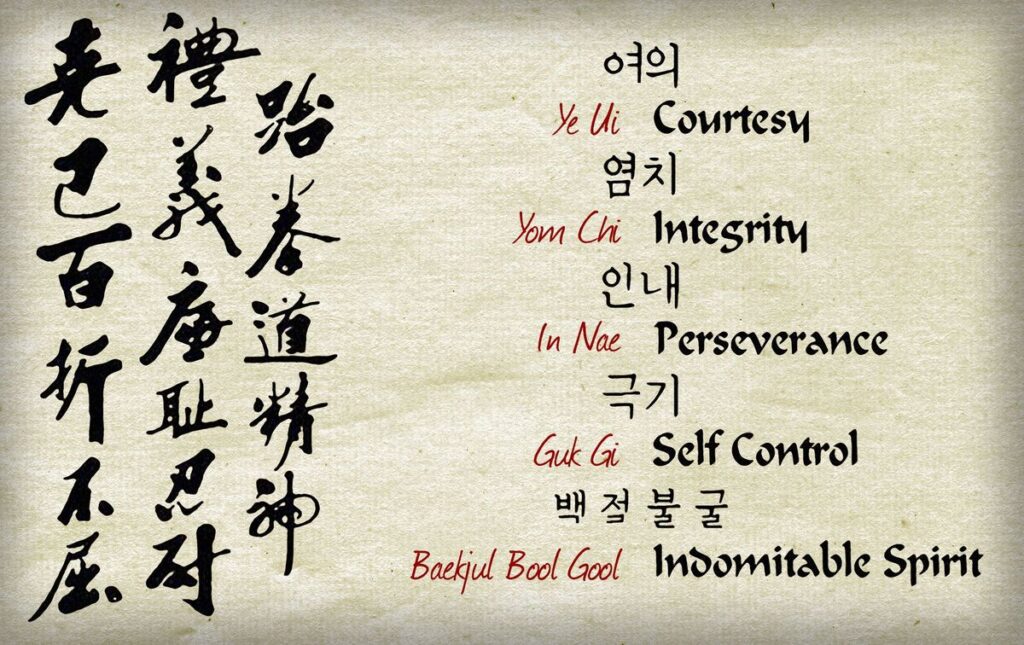 跆拳道精神
禮義廉耻忍耐
克己百折不屈
여의
Ye Ui Courtesy
염치
Yom Chi Integrity
인내
In Nae Perseverance
극기
Guk Gi Self Control
백 절 불 굴
Baekjul Bool Gool Indomitable Spirit